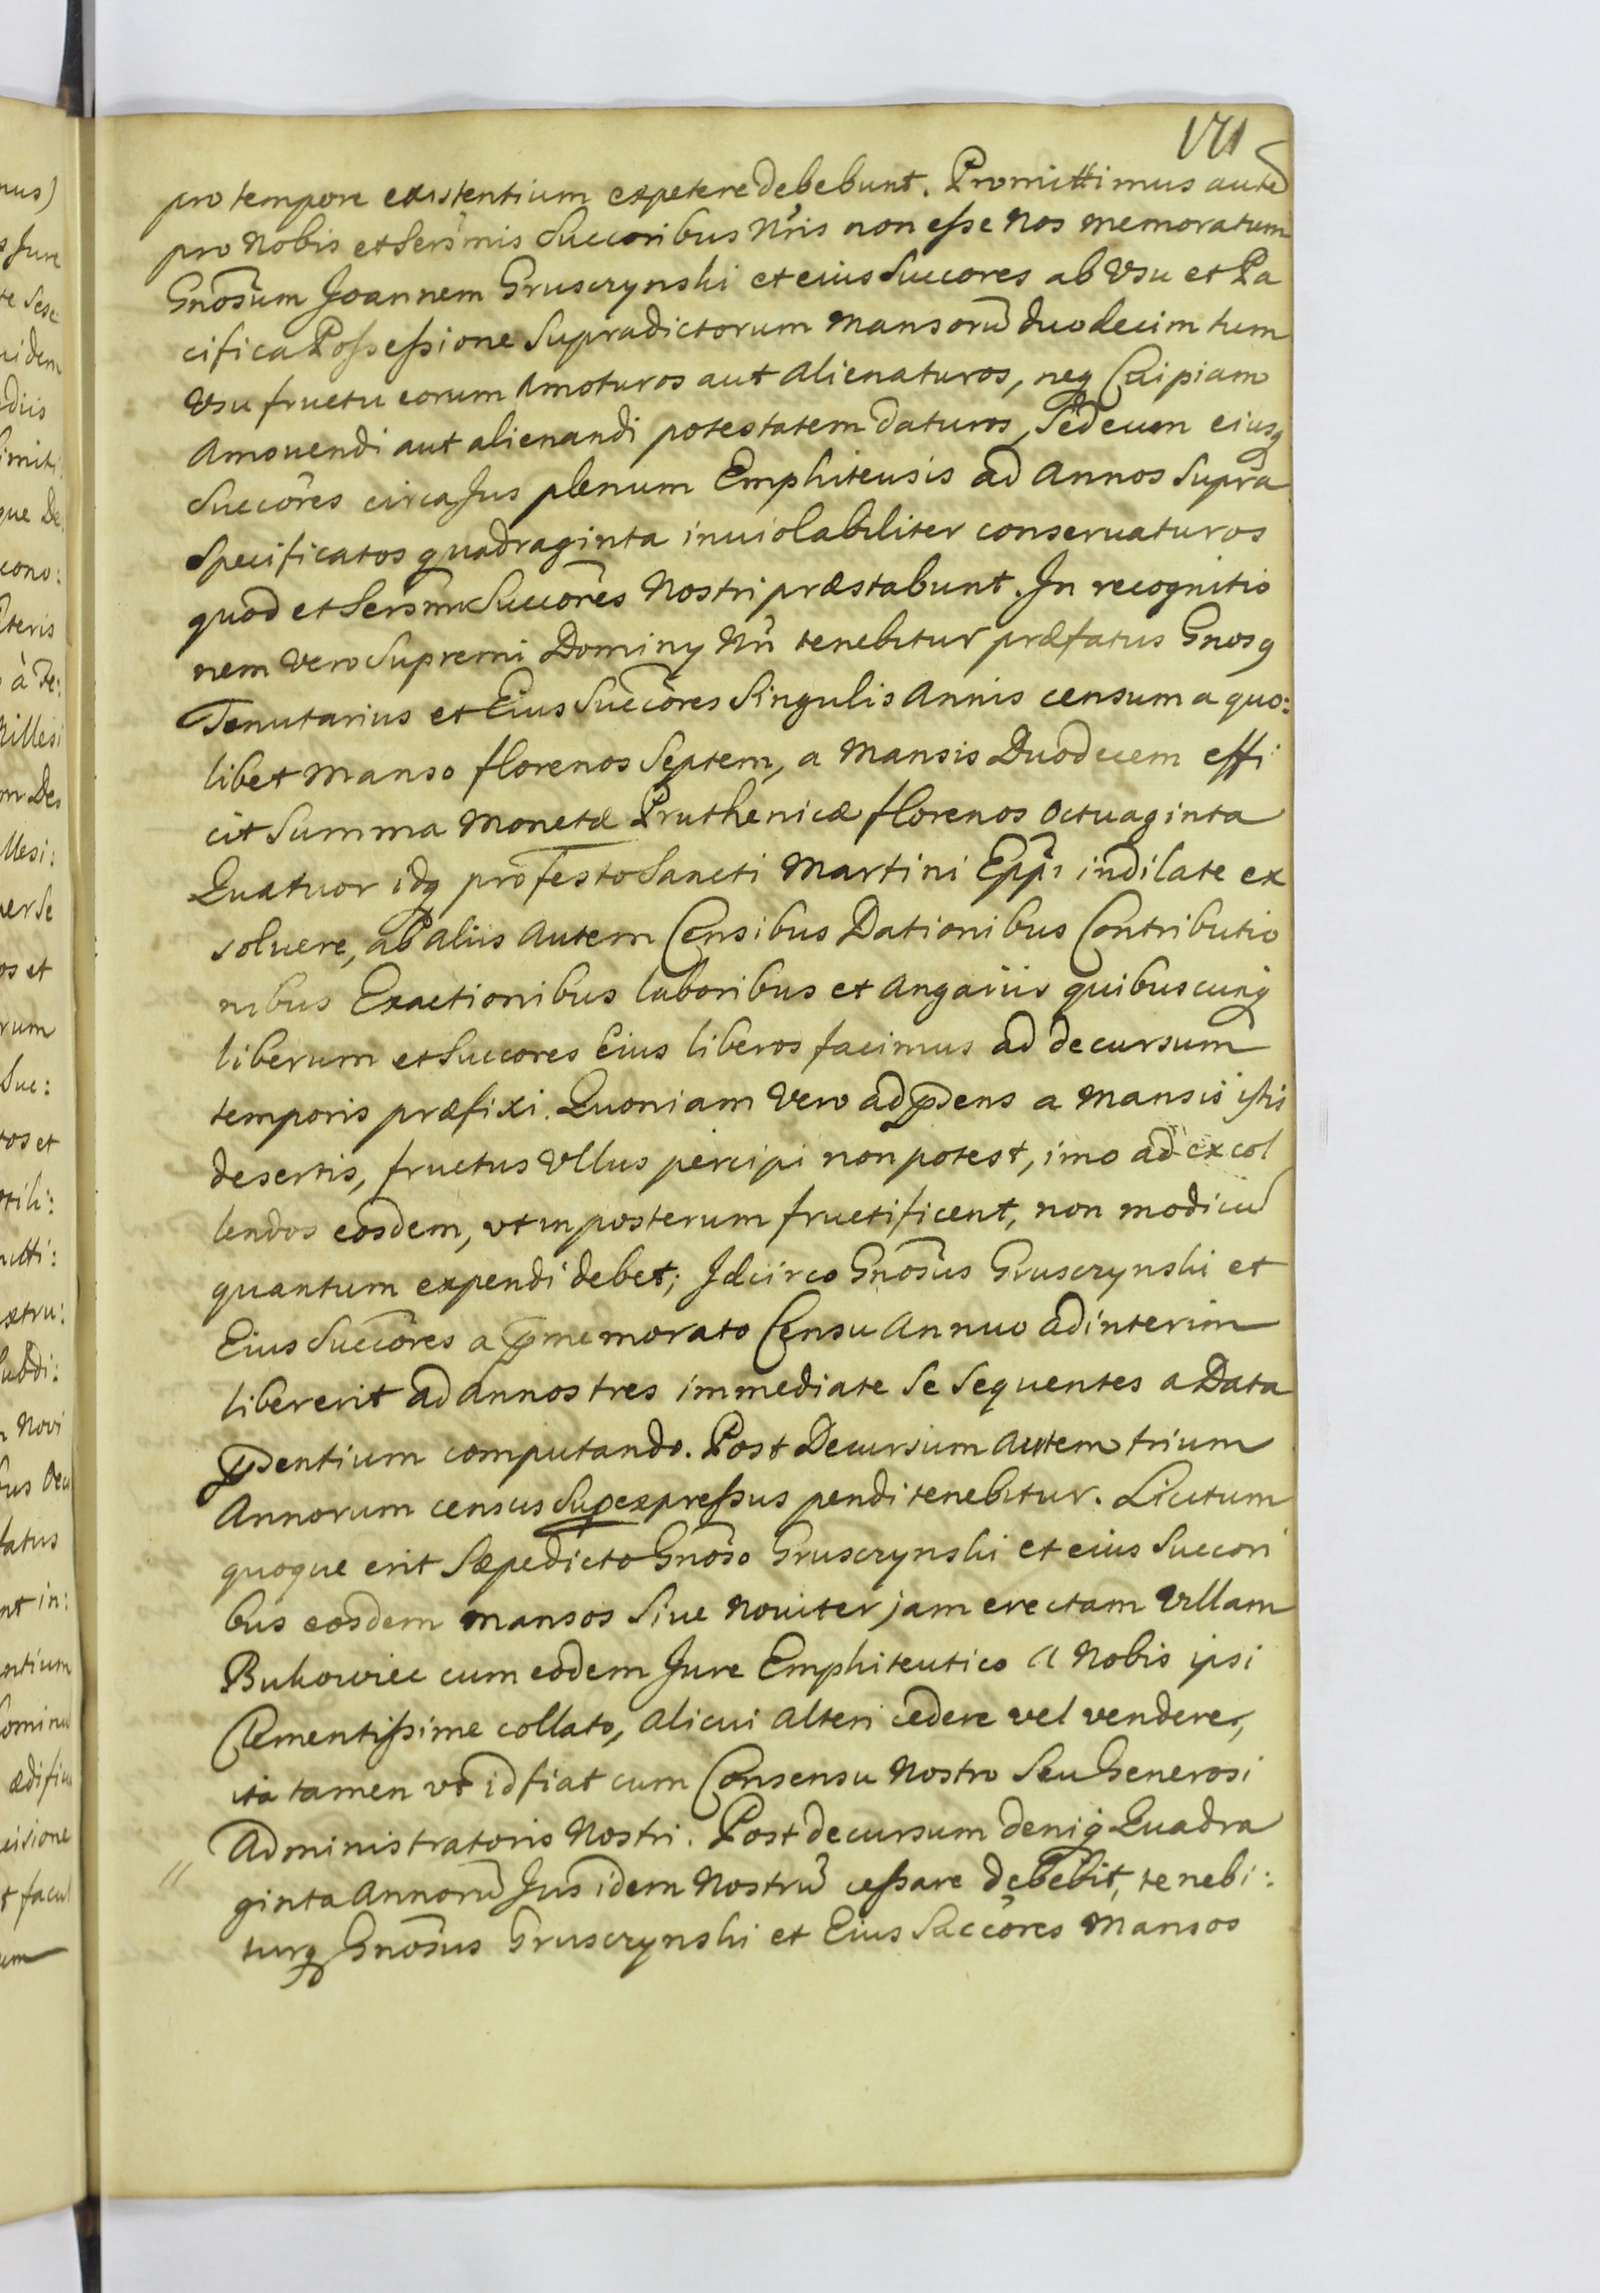 171
pro tempore existentium expetere debebunt. Promittimus autē
pro Nobis et Serm̃is Succoribus Nr̃is non esse Nos memoratum
Gnosũm Joannem Gruscrynski et eius Succores ab Vsu et Pa
cifica Possessione Supradictorum Mansorū duodecim tum
Vsu fructu eorum Amoturos aut Alienaturos, neq Cuipiam
Amouendi aut alienandi potestatem daturos, Sed eum eiusq
Succōres circa Jus plenum Emphiteusis ad Annos Supra
Specificatos quadraginta inuiolabiliter conseruaturos
quod et Sersm̃i Succōres Nostri præstabunt. In recognitio
nem Vero Supremi Dominy Nr̃i tenebitur præfatus Gnosq
Tenutarius et Eius Succōres Singulis Annis censum a quo:
libet Manso florenos Septem, a Mansis Duodecem effi
cit Summa Monetæ Pruthenicæ florenos Octuaginta
Quatuor idq pro Festo Sancti Martini Epp̃i indilate ex
soluere, ab Aliis Autem Censibus Dationibus Contributio
nibus Exactionibus laboribus et Angariis quibuscunq
liberum et Succores Eius liberos facimus ad decursum
temporis præfixi. Quoniam Vero ad p̃dens a Mansis istis
desertis, fructus Vllus percipi non potest, imo ad excol
lendos eosdem, vt in posterum fructificent, non modicū
quantum expendi debet; Idcirco Gnosũs Gruscrynski et
Eius Succōres a p̃memorato Censu Annuo ad interim
libererit ad Annos tres immediate Se Sequentes a Data
p̃dentium computando. Post Decursum Autem trium
Annorum census Supexpressus pendi tenebitur. Licitum
quoque erit Sæpedicto Gnoso Gruscrynski et eius Succori
bus eosdem Mansos Siue Nouiter jam erectam Villam
Bukowiec cum eodem Jure Emphiteutico A Nobis ipsi
Clementissime collato, Alicui Alteri cedere vel vendere,
ita tamen vt id fiat cum Consensu Nostro Seu Generosi
Administratoris Nostri. Post decursum deniq Quadra
ginta Annorū Jus idem Nostrū cessare debebit, tenebi:
turq Gnosũs Gruscrynski et Eius Saccōres Mansos